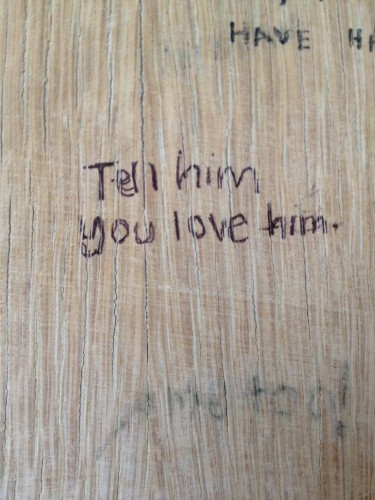 HAVE
Tell him
you love him.